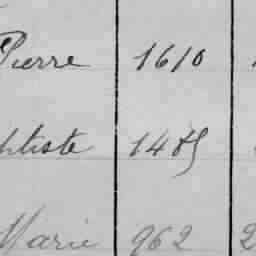 Pierre 1610
ptiste 1485
Marie 962 2